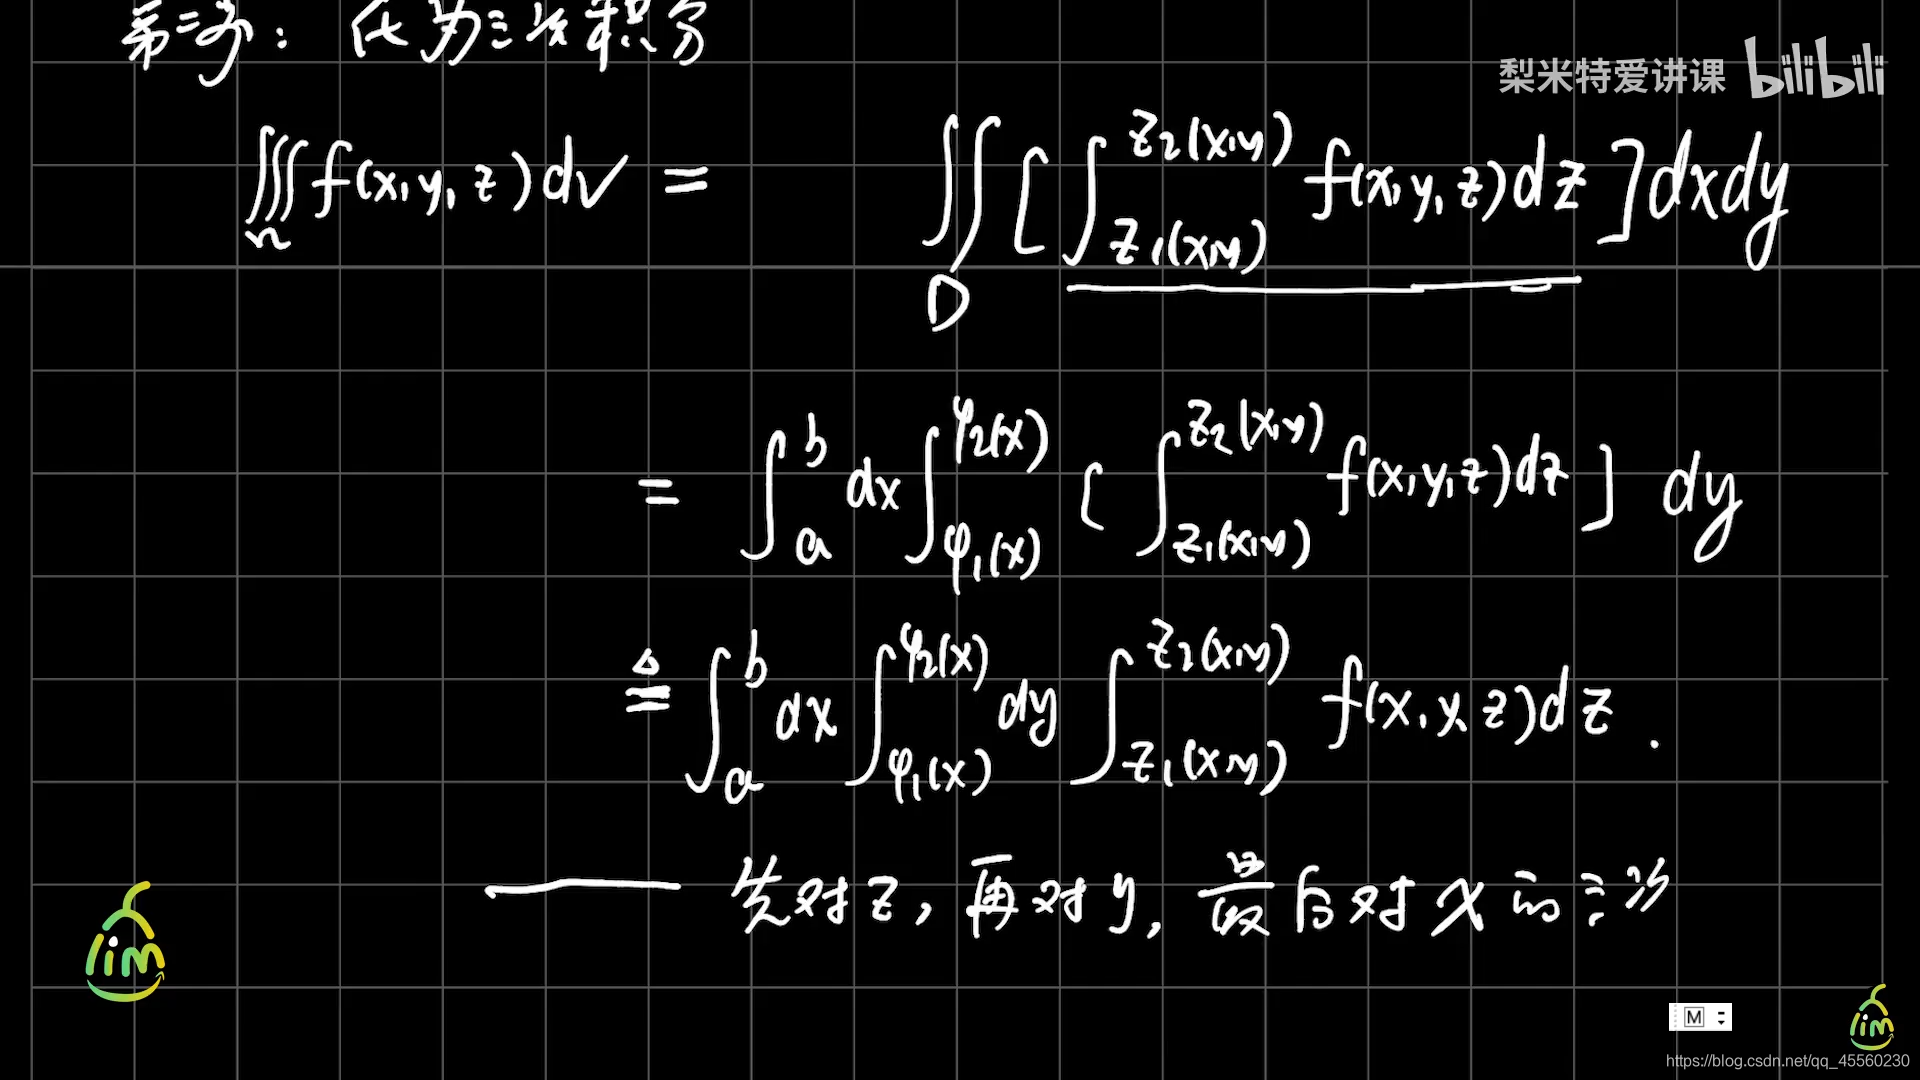 第三步：化为三次积分
梨米特爱讲课 bilibili
∭_Ω f(x,y,z)dv = ∬_D [∫_{z₁(x,y)}^{z₂(x,y)} f(x,y,z)dz]dxdy
= ∫_a^b dx ∫_{φ₁(x)}^{φ₂(x)} [∫_{z₁(x,y)}^{z₂(x,y)} f(x,y,z)dz] dy
≜ ∫_a^b dx ∫_{φ₁(x)}^{φ₂(x)} dy ∫_{z₁(x,y)}^{z₂(x,y)} f(x,y,z)dz.
—— 先对z，再对y，最后对x的三次
lim
M
lim
https://blog.csdn.net/qq_45560230